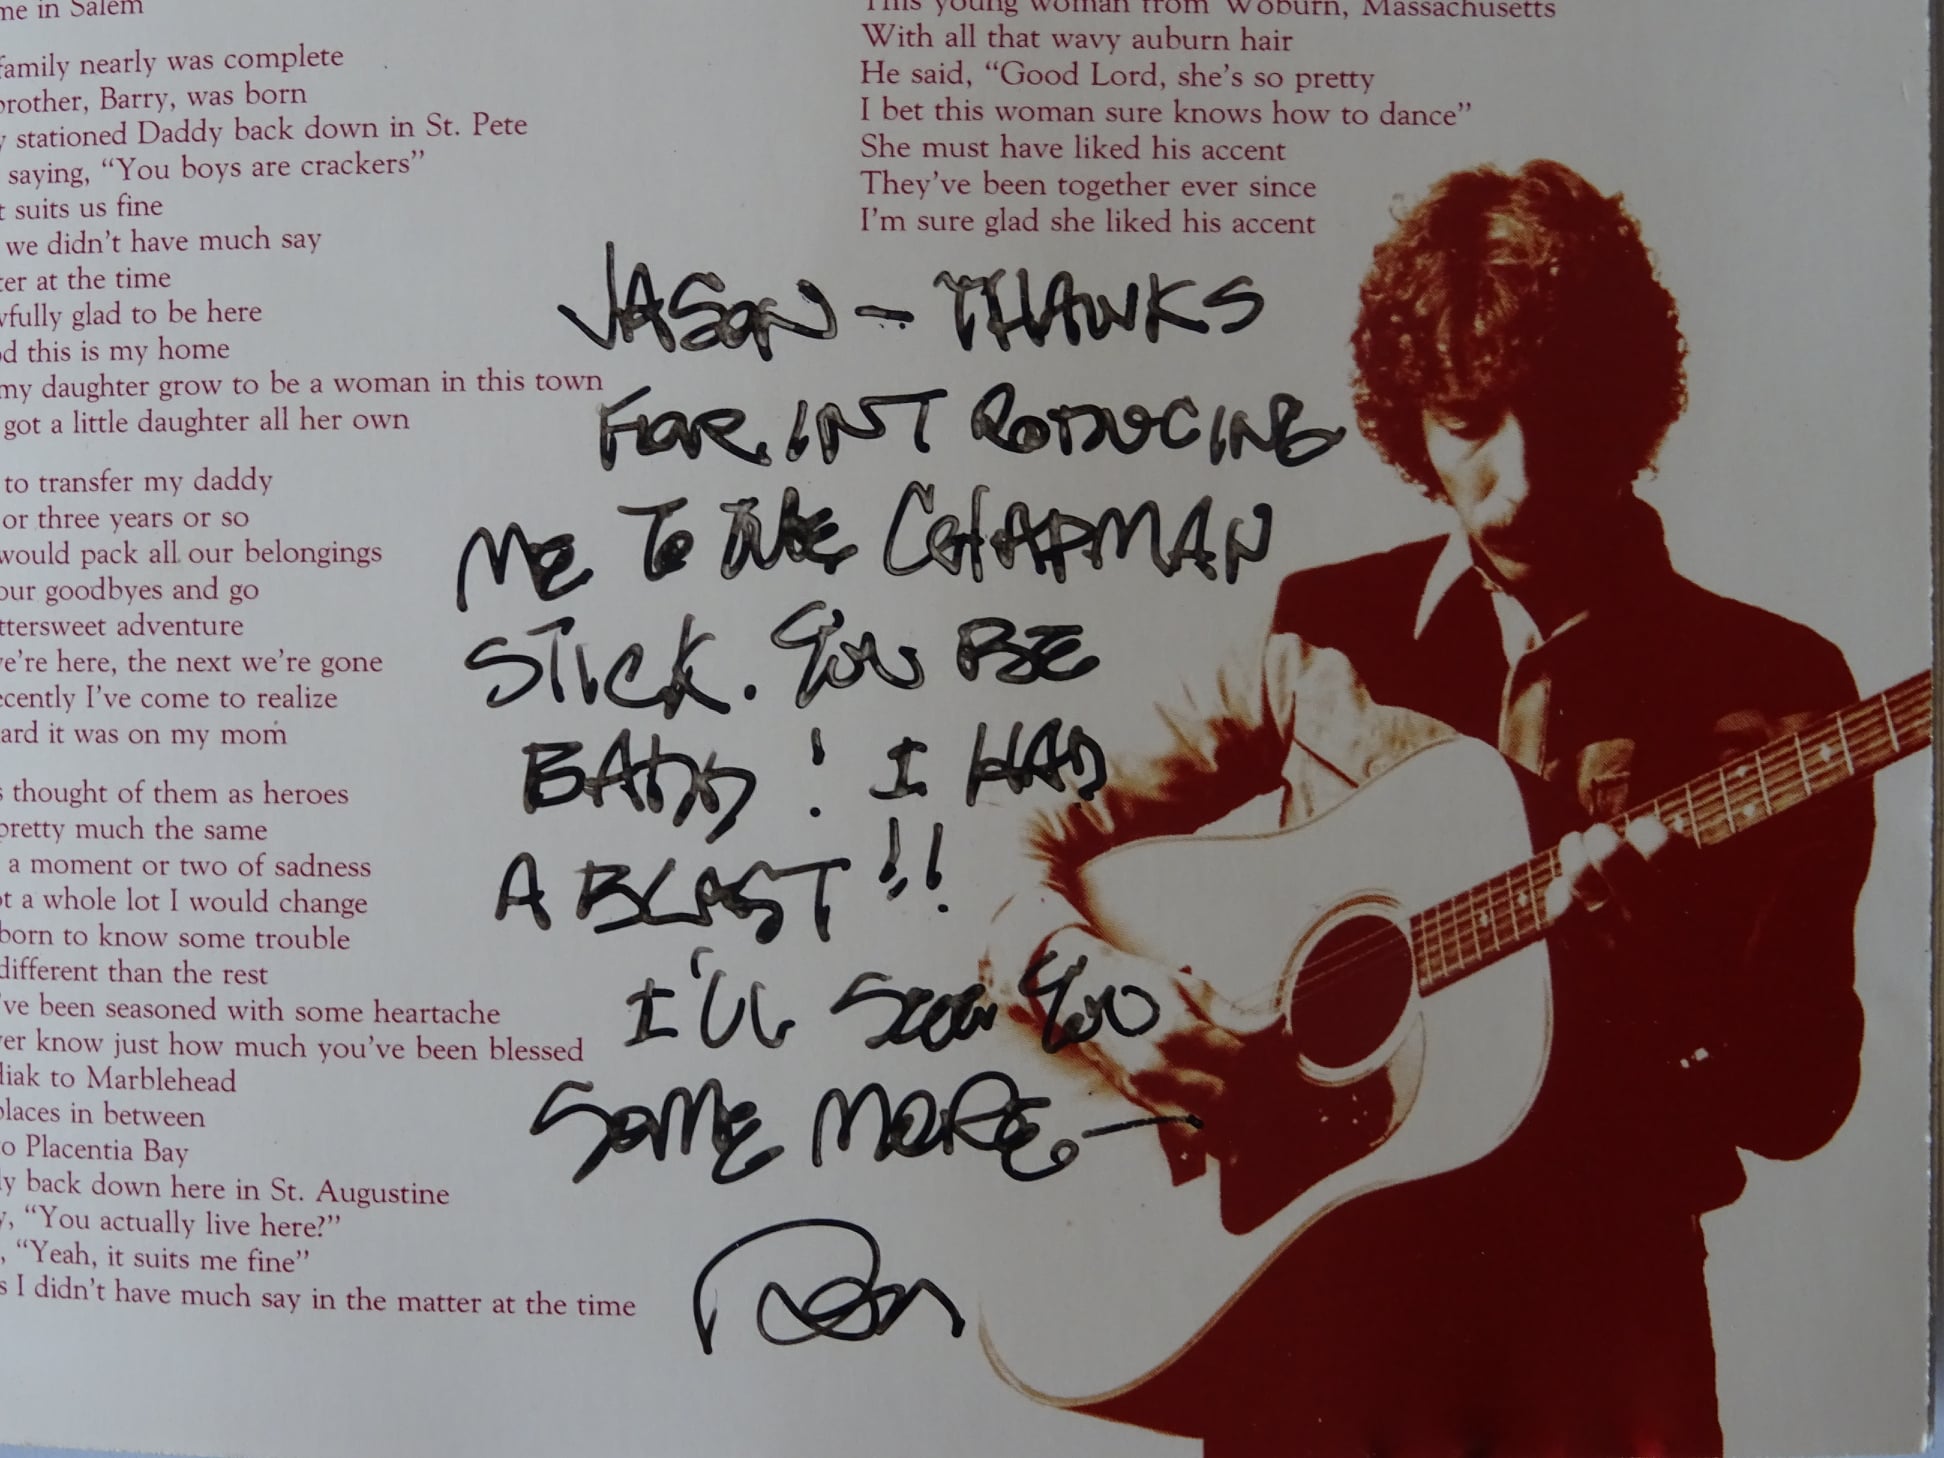 me in Salem
family nearly was complete
brother, Barry, was born
y stationed Daddy back down in St. Pete
saying, “You boys are crackers”
t suits us fine
we didn’t have much say
ter at the time
wfully glad to be here
d this is my home
my daughter grow to be a woman in this town
got a little daughter all her own
to transfer my daddy
or three years or so
would pack all our belongings
our goodbyes and go
ttersweet adventure
e’re here, the next we’re gone
ecently I’ve come to realize
ard it was on my mom
s thought of them as heroes
pretty much the same
a moment or two of sadness
ot a whole lot I would change
born to know some trouble
different than the rest
’ve been seasoned with some heartache
er know just how much you’ve been blessed
diak to Marblehead
places in between
o Placentia Bay
ly back down here in St. Augustine
y, “You actually live here?”
, “Yeah, it suits me fine”
s I didn’t have much say in the matter at the time
This young woman from Woburn, Massachusetts
With all that wavy auburn hair
He said, “Good Lord, she’s so pretty
I bet this woman sure knows how to dance”
She must have liked his accent
They’ve been together ever since
I’m sure glad she liked his accent
JASON – THANKS
FOR INTRODUCING
ME TO THE CHAPMAN
STICK. YOU BE
BADD! I HAD
A BLAST!!
I'LL SEE YOU
SOME MORE. —